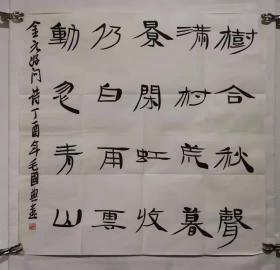 樹合秋聲
滿村荒暮
景閑虹收
仍白雨雲
動忽青山
金元好问詩丁酉年毛國典書